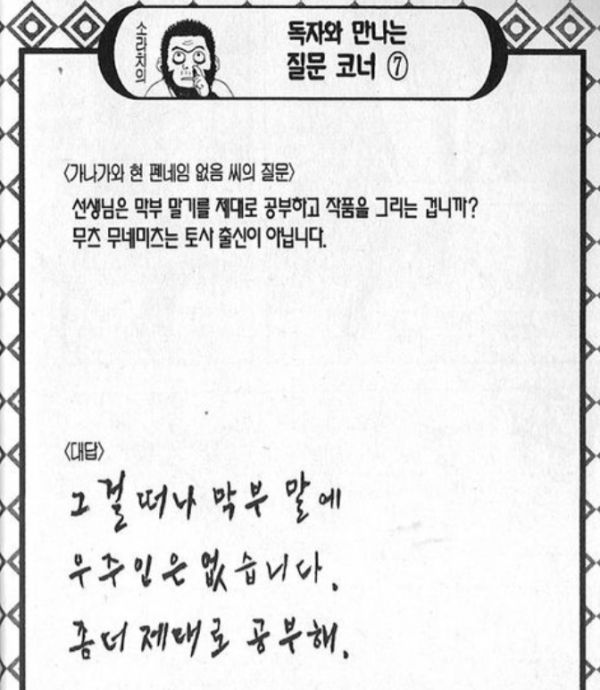 소라치의
독자와 만나는
질문 코너 ⑦
<가나가와 현 펜네임 없음 씨의 질문>
선생님은 막부 말기를 제대로 공부하고 작품을 그리는 겁니까?
무츠 무네미츠는 토사 출신이 아닙니다.
<대답>
그걸 떠나 막부 말에
우주인은 없습니다.
좀 더 제대로 공부해.